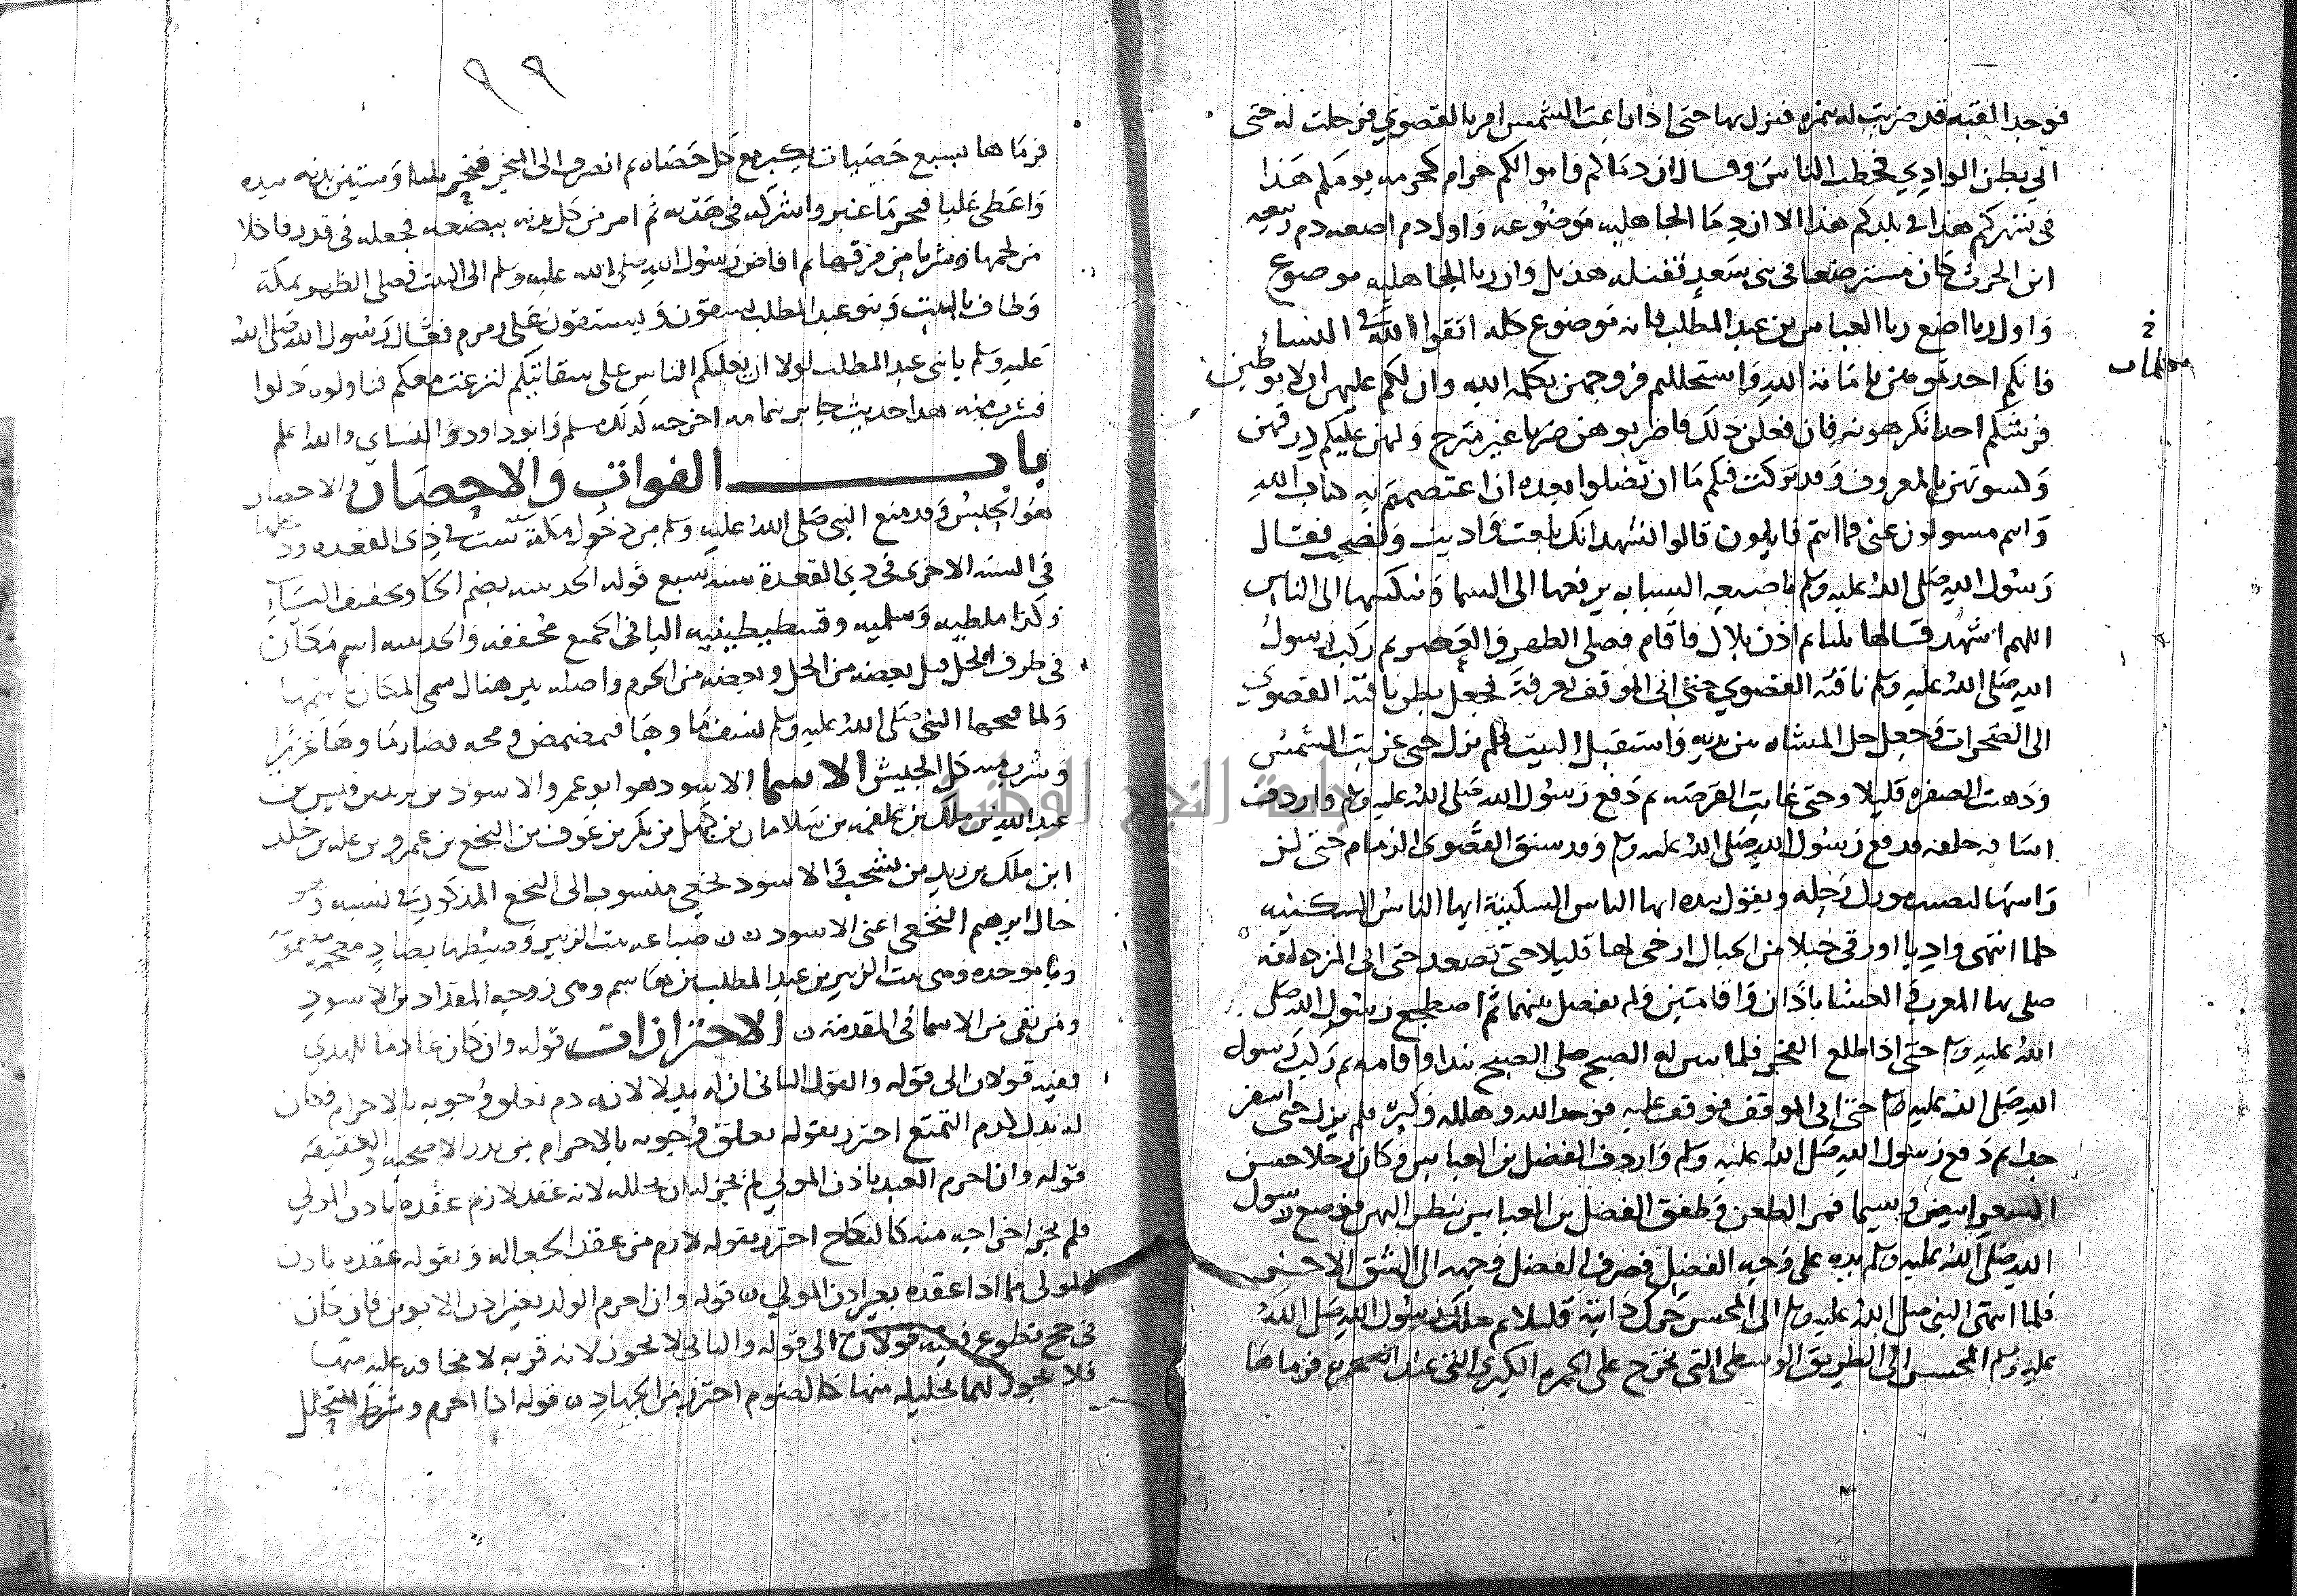 فوجد القبه قد ضربت له بنمره فنزل بها حتى اذا زاغت الشمس امر بالقصوي فرحلت له حتى
الي بطن الوادي فخطب الناس وقال ان دماكم واموالكم حرام كحرمه يومكم هذا
في شهركم هذا في بلدكم هذا الا ان دما الجاهليه موضوعه واول دم اضعه دم ربيعه
ابن الحرث كان مسترضعا في بني سعد فقتله هذيل وان ربا الجاهليه موضوع
واول ربا اضع ربا العباس بن عبد المطلب فانه موضوع كله اتقوا الله في النساء
فانكم اخذتموهن بامانة الله واستحللتم فروجهن بكلمه الله وان لكم عليهن ان لا يوطين
فرشكم احدا تكرهونه فان فعلن ذلك فاضربوهن ضربا غير مبرح ولهن عليكم رزقهن
وكسوتهن بالمعروف وقد تركت فيكم ما ان تضلوا بعده ان اعتصمتم به كتاب الله
وانتم مسولون عني فما انتم قايلون قالوا نشهد انك بلغت واديت ونصحت فقال
رسول الله صلى الله عليه وسلم باصبعه السبابه يرفعها الى السما وينكبها الى الناس
اللهم اشهد قالها ثلثا ثم اذن بلال فاقام فصلى الظهر والعصر ثم ركب رسول
الله صلى الله عليه وسلم ناقته القصوي حتى اتى الموقف بعرفة فجعل بطن ناقته القصوى
الى الصخرات وجعل حبل المشاه بين يديه واستقبل البيت فلم يزل حتى غربت الشمس
وذهبت الصفره قليلا وحتى غابت القرصه ثم دفع رسول الله صلى الله عليه وسلم واردف
اسامه خلفه فدفع رسول الله صلى الله عليه وسلم وقد سنق القصوى الزمام حتى ان
راسها ليصيب مورك رحله ويقول بيده ايها الناس السكينة ايها الناس السكينه
كلما انتهى واديا اورقى حبلا من الحبال ارخى لها قليلا حتى تصعد حتى اتى المزدلفه
صلى بها المغرب والعشا باذان واقامتين ولم يفصل بينهما ثم اضطجع رسول الله صلى
الله عليه وسلم حتى اذا طلع الفجر فلما تبين له الصبح صلى الصبح بندا واقامه ثم ركب رسول
الله صلى الله عليه وسلم حتى اتى الموقف فوقف عليه فوحد الله وهلله وكبره فلم يزل حتى اسفر
جدا ثم دفع رسول الله صلى الله عليه وسلم واردف الفضل بن العباس وكان رجلا حسن
الشعر ابيض وسيما فمر الظعن وطفق الفضل بن العباس ينظر اليهن فوضع رسول
الله صلى الله عليه وسلم يده على وجه الفضل فصرف الفضل وجهه الى الشق الاخر
فلما انتهى النبي صلى الله عليه وسلم الى المحسر حرك دابته قليلا ثم سلك رسول الله صلى الله
عليه وسلم المحسر الى الطريق الوسطى التي تخرج على الجمره الكبرى التي عند الشجره فرماها
٩٩
فرماها بسبع حصيات يكبر مع كل حصاه ثم انصرف الى النحر فنحر ثلثا وستين بدنه بيده
واعطى عليا فنحر ما غبر واشركه في هديه ثم امر من كل بدنه ببضعه فجعله في قدر فاكلا
من لحمها وشربا من مرقها ثم افاض رسول الله صلى الله عليه وسلم الى البيت فصلى الظهر بمكة
وطاف بالبيت وبنو عبد المطلب يسقون ويستقون على زمزم فقال رسول الله صلى الله
عليه وسلم يا بني عبد المطلب لولا ان يغلبكم الناس على سقايتكم لنزعت معكم فناولوه دلوا
فشرب منه هذا حديث جابر بتمامه اخرجه كذلك مسلم وابو داود والنساي والله اعلم
باب الفوات والاحصار والاحصار
هو الحبس وقد منع النبي صلى الله عليه وسلم من دخول مكة سنة ست في ذي القعده
في السنه الاخرى في ذي القعدة سنه سبع قوله الحديبيه بضم الحا وتخفيف الياء
وكذا ملطيه وسلميه وقسطنطينيه اليا في الجميع مخففه والحديبيه اسم مكان
في طرف الحل قيل بعضه من الحل وبعضه من الحرم واصله بير هناك سمي المكان باسمها
ولما فتحها النبي صلى الله عليه وسلم نشف ماوها فتمضمض ومجه فصار ماوها غزيرا
وشرب منه كل الجيش الاسما الاسود هو ابو عمرو الاسود بن يزيد بن قيس بن
عبد الله بن ملك بن علقمه بن سلامان بن كهيل بن بكر بن عوف بن النخع بن عمرو بن عله بن جلد
ابن ملك بن زيد بن يشجب والاسود نخعي منسوب الى النخع المذكور في نسبه وهو
خال ابرهيم النخعي اعني الاسود ٥٥ ضباعه بنت الزبير وضبطها بضاد معجمه مضمومه
وبا موحده وهى بنت الزبير بن عبد المطلب بن هاشم وهى زوجه المقداد بن الاسود
ومن بقى من الاسما في المقدمة ٥ الاحترازات قوله وان كان عادما للهدي
ففيه قولان الى قوله والقول الثاني ان له بدلا لانه دم تعلق وجوبه بالاحرام فكان
له بدل كدم التمتع احترز بقوله تعلق وجوبه بالاحرام من الاضحيه والعقيقه
قوله وان احرم العبد باذن المولي لم يجز له ان يحلله لانه عقد لازم عقده باذن المولي
فلم يجز اخراجه منه كالنكاح احترز بقوله لازم من عقد الجعاله وبقوله عقده باذن
المولى مما اذا عقده بغير اذن المولي ٥ قوله وان احرم الولد بغير اذن الابوين فان كان
في حج تطوع ففيه قولان الى قوله والثاني لا يجوز لانه قربه لا مخافه عليه فيها
فلا يجوز لهما تحليله منها كالصوم احترز من الجهاد ٥ قوله اذا احرم وشرط التحلل